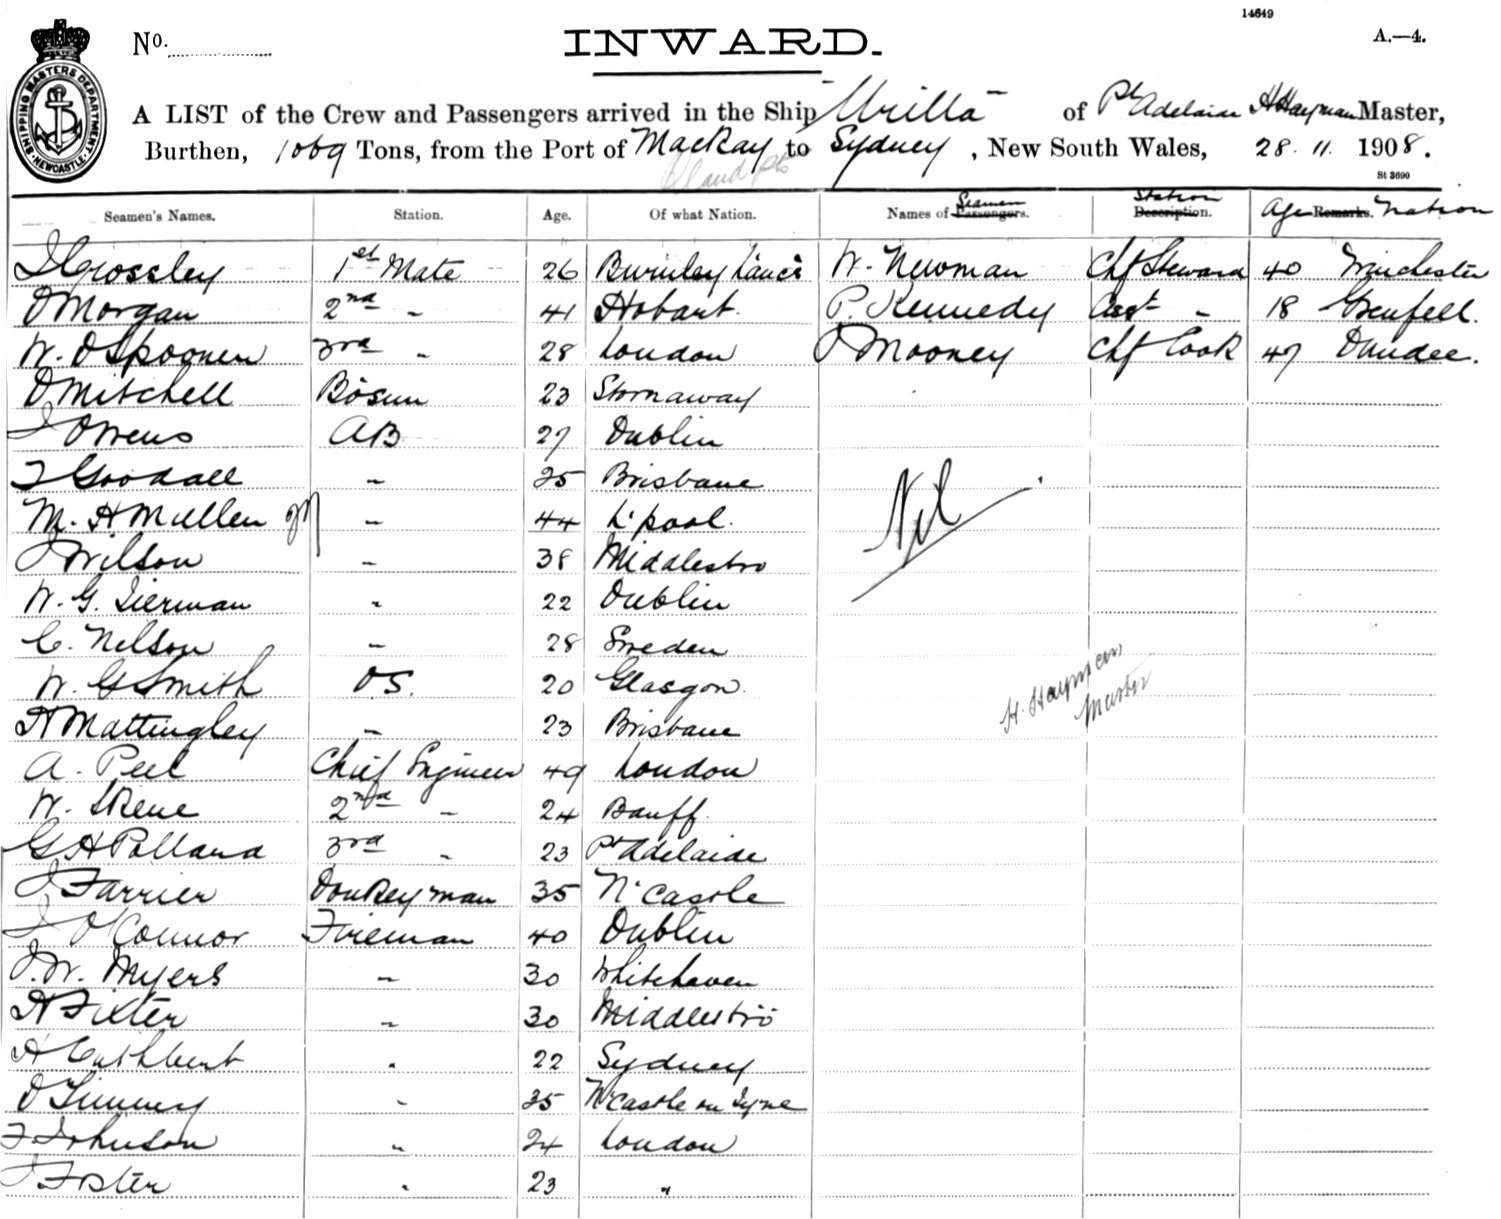 14649
No.
INWARD.
A.—4.
SHIPPING MASTERS DEPARTMENT NEWCASTLE
A LIST of the Crew and Passengers arrived in the Ship "Urilla" of Pt Adelaide H Hayman Master,
Burthen, 1069 Tons, from the Port of Mackay to Sydney, New South Wales, 28. 11. 1908.
St 3690
Seamen's Names. Station. Age. Of what Nation. Names of Passengers. Seamen Description. Station Age Remarks. Nation
J Crossley 1st Mate 26 Burnley Lancs W. Newman Chf Steward 40 Winchester
D Morgan 2nd " 41 Hobart. P. Kennedy Asst " 18 Grenfell.
W. D Spooner 3rd " 28 London J Mooney Chf Cook 47 Dundee.
D Mitchell Bosun 23 Stornaway
J Owens AB 27 Dublin
T Goodall " 25 Brisbane
M. H Mullen " 44 L'pool.
J Wilson " 38 Middlesbro
W. G. Tierman " 22 Dublin
C. Nelson " 28 Sweden
W. G Smith OS. 20 Glasgow.
H Mattingley " 23 Brisbane
A. Peel Chief Engineer 49 London
W. Skene 2nd " 24 Banff.
G H Pollard 3rd " 23 Pt Adelaide
J Farrier Donkeyman 35 N'castle
J O'Connor Fireman 40 Dublin
J. W. Myers " 30 Whitehaven
H Fixter " 30 Middlesbro
A Cuthbert " 22 Sydney
D Tinney " 35 N'Castle on Tyne
F Johnson " 24 London
J Foster " 23 "
Nil
H. Hayman
Master